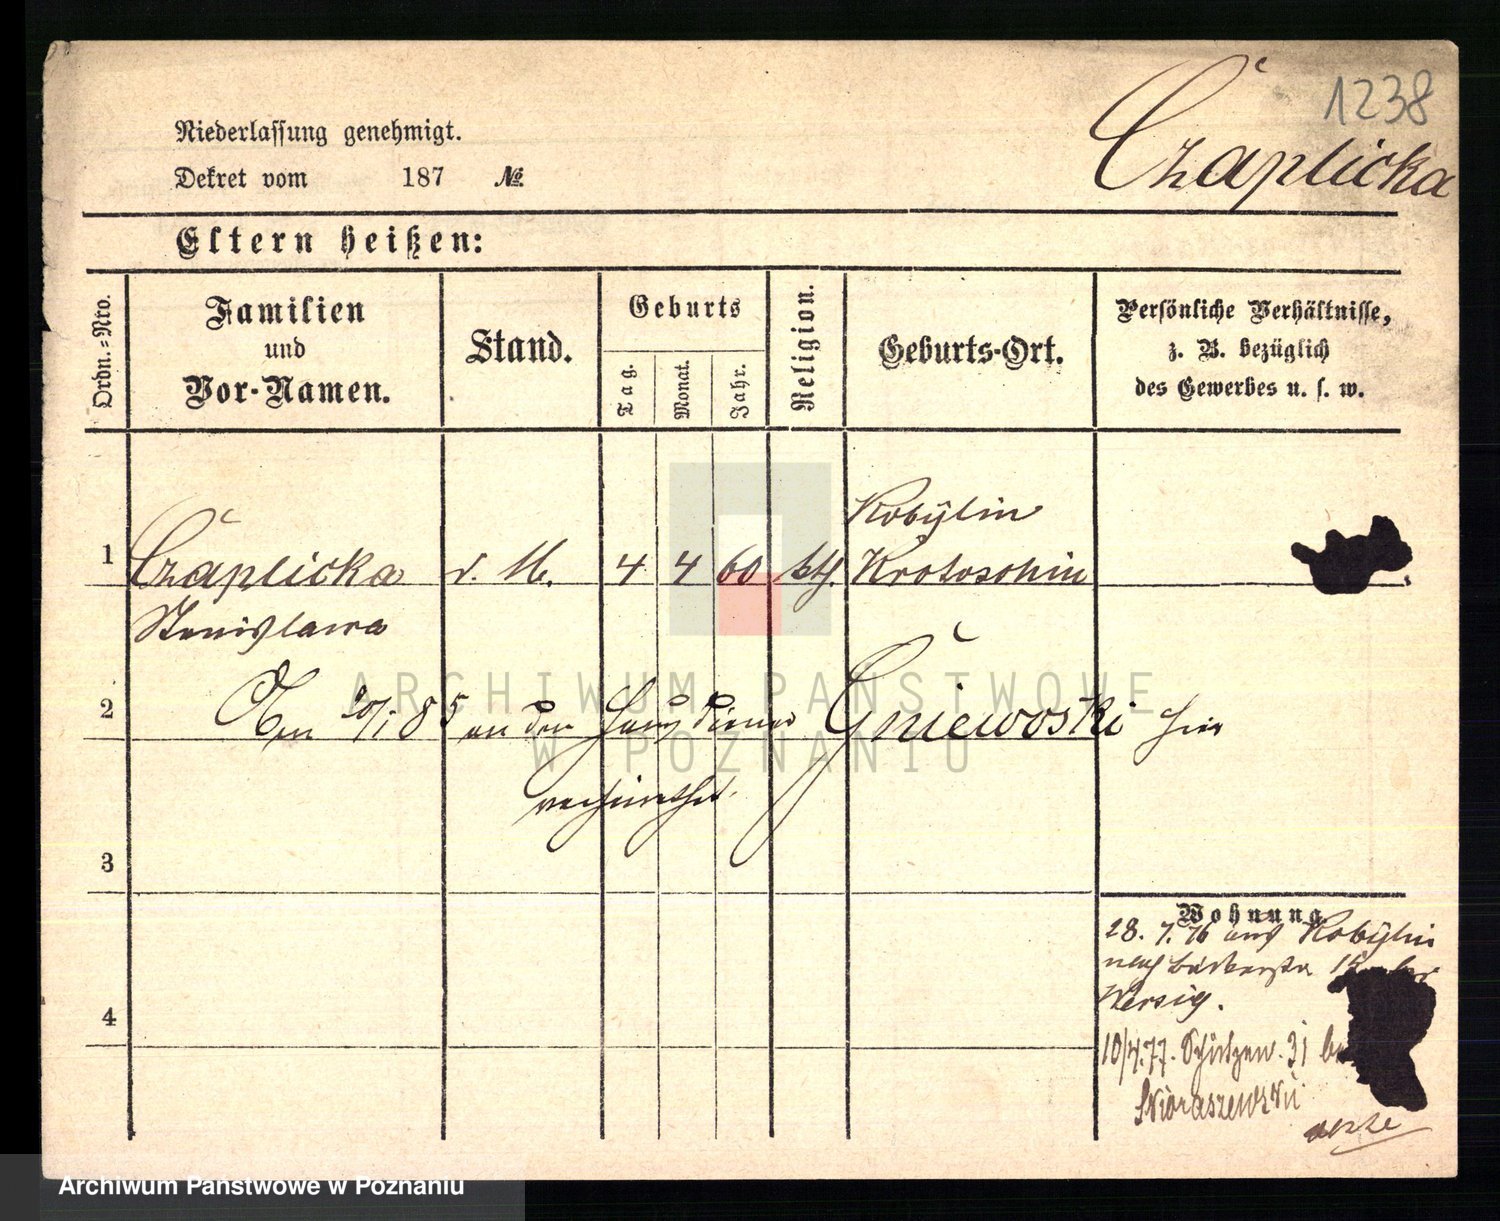 1238
Czaplicka
Niederlassung genehmigt.
Dekret vom 187 №
Eltern heißen:
Ordn.-Nro.
Familien
und
Vor-Namen.
Stand.
Geburts
Tag.
Monat.
Jahr.
Religion.
Geburts-Ort.
Persönliche Verhältnisse,
z. B. bezüglich
des Gewerbes u. s. w.
Kobylin
1 Czaplicka d. M. 4 4 60 kth. Krotoschin
Stanislawa
2 Am 20/1 85 an den Hausdiener Gniewoski hier
verheirathet.
3
4
Wohnung
28. 7. 76 aus Kobylin
nach 15 bei
Wersig.
10/4.77. Schützen. 31 bei
Skoraszewski
ARCHIWUM PAŃSTWOWE
W POZNANIU
Archiwum Państwowe w Poznaniu